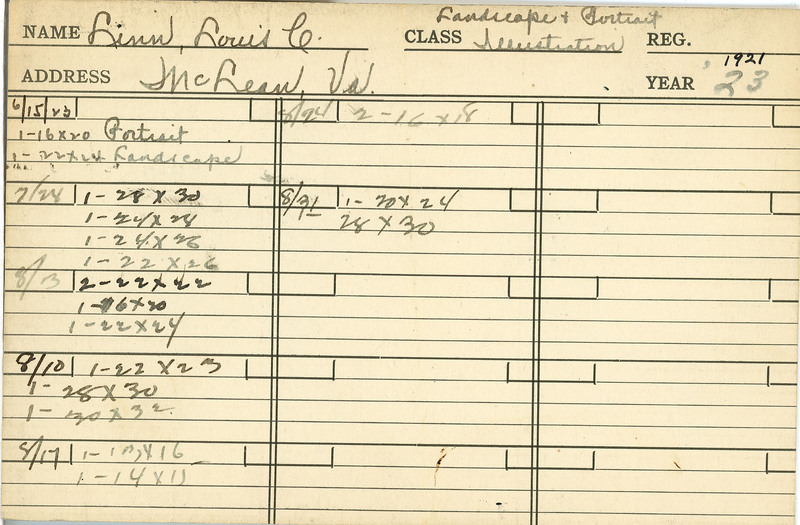 Landscape & Portrait
NAME Linn, Louis C. CLASS Illustration REG.
1921
ADDRESS McLean, Va. YEAR '23
6/15/23
1-16x20 Portrait
1-22x24 Landscape
7/28 1-28x30
1-24x28
1-24x26
1-22x26
8/3 2-22x22
1-16x20
1-22x24
8/10 1-22x23
1-28x30
1-30x32
8/17 1-13x16
1-14x11
8/24 2-16x18
8/31 1-20x24
28x30